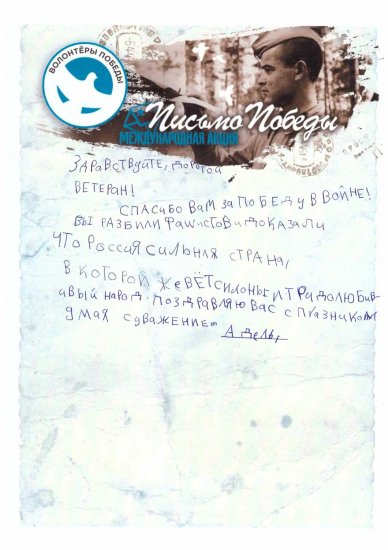 ВОЛОНТЁРЫ ПОБЕДЫ
Письмо Победы
МЕЖДУНАРОДНАЯ АКЦИЯ
ЗДРАВСТВУЙТЕ, ДОРОГОЙ
ВЕТЕРАН!
СПАСИБО ВАМ ЗА ПОБЕДУ В ВОЙНЕ!
ВЫ РАЗБИЛИ ФАШИСТОВ И ДОКАЗАЛИ
ЧТО РОССИЯ СИЛЬНАЯ СТРАНА,
В КОТОРОЙ ЖЕВЁТ СИЛОНЫЙ И ТРАДОЛЮБИВ-
ИВЫЙ НАРОД. ПОЗДРАВЛЯЮ ВАС С ПРАЗНИКОМ
9 МАЯ С УВАЖЕНИЕМ АДЕЛЬ,